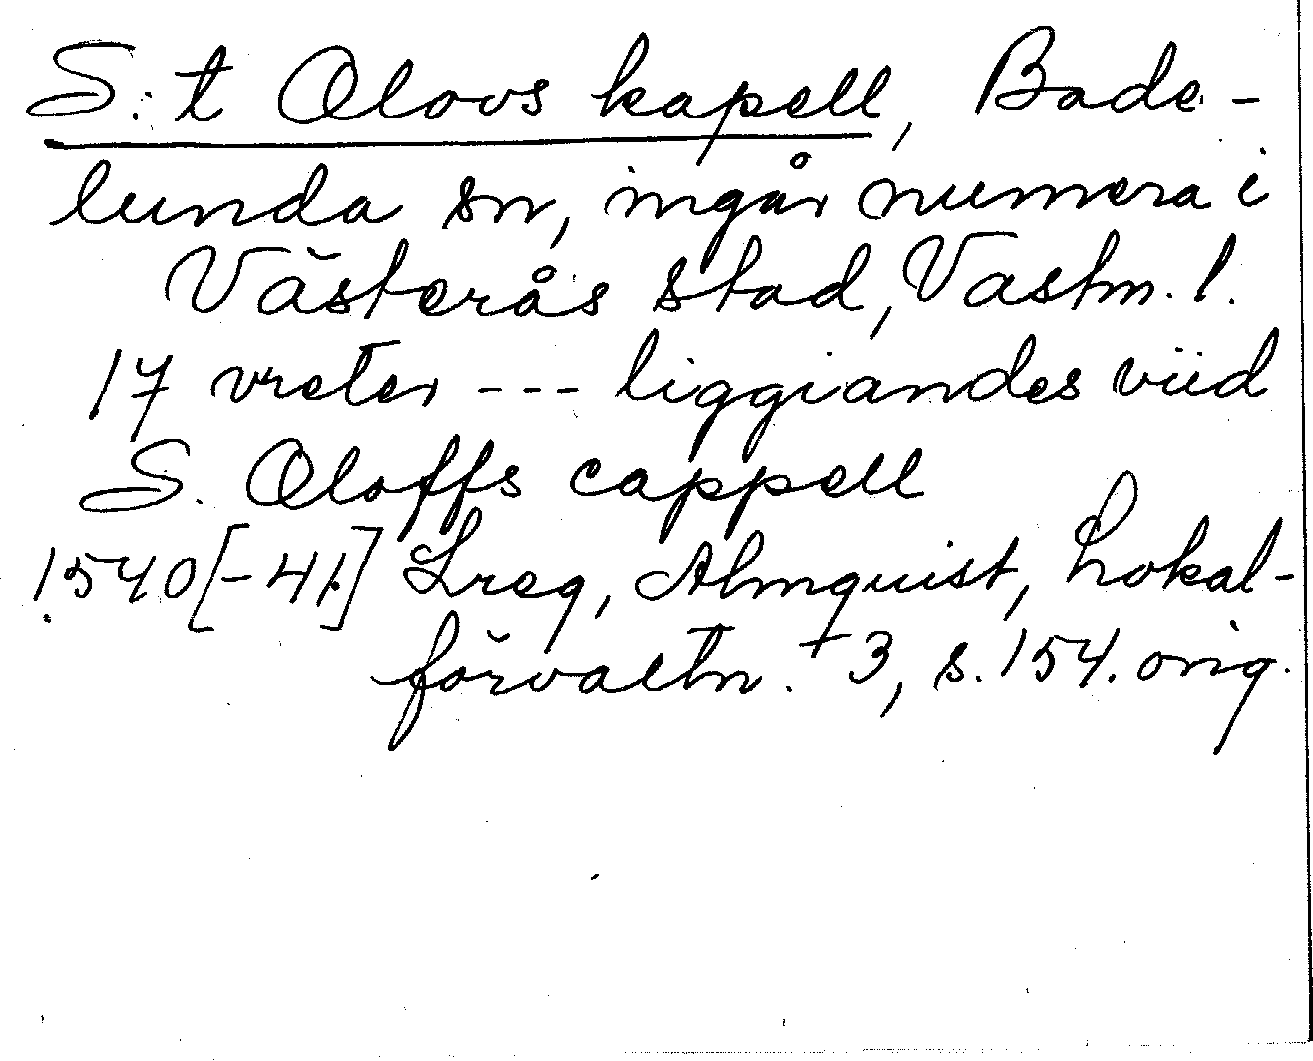 S:t Olovs kapell, Bade-
lunda sn, ingår numera i
Västerås stad, Västm. l.
17 vreter --- liggiandes viid
S. Oloffs cappell
1540[-41] Lreg, Almquist, Lokal-
förvaltn. + 3, s. 154. orig.